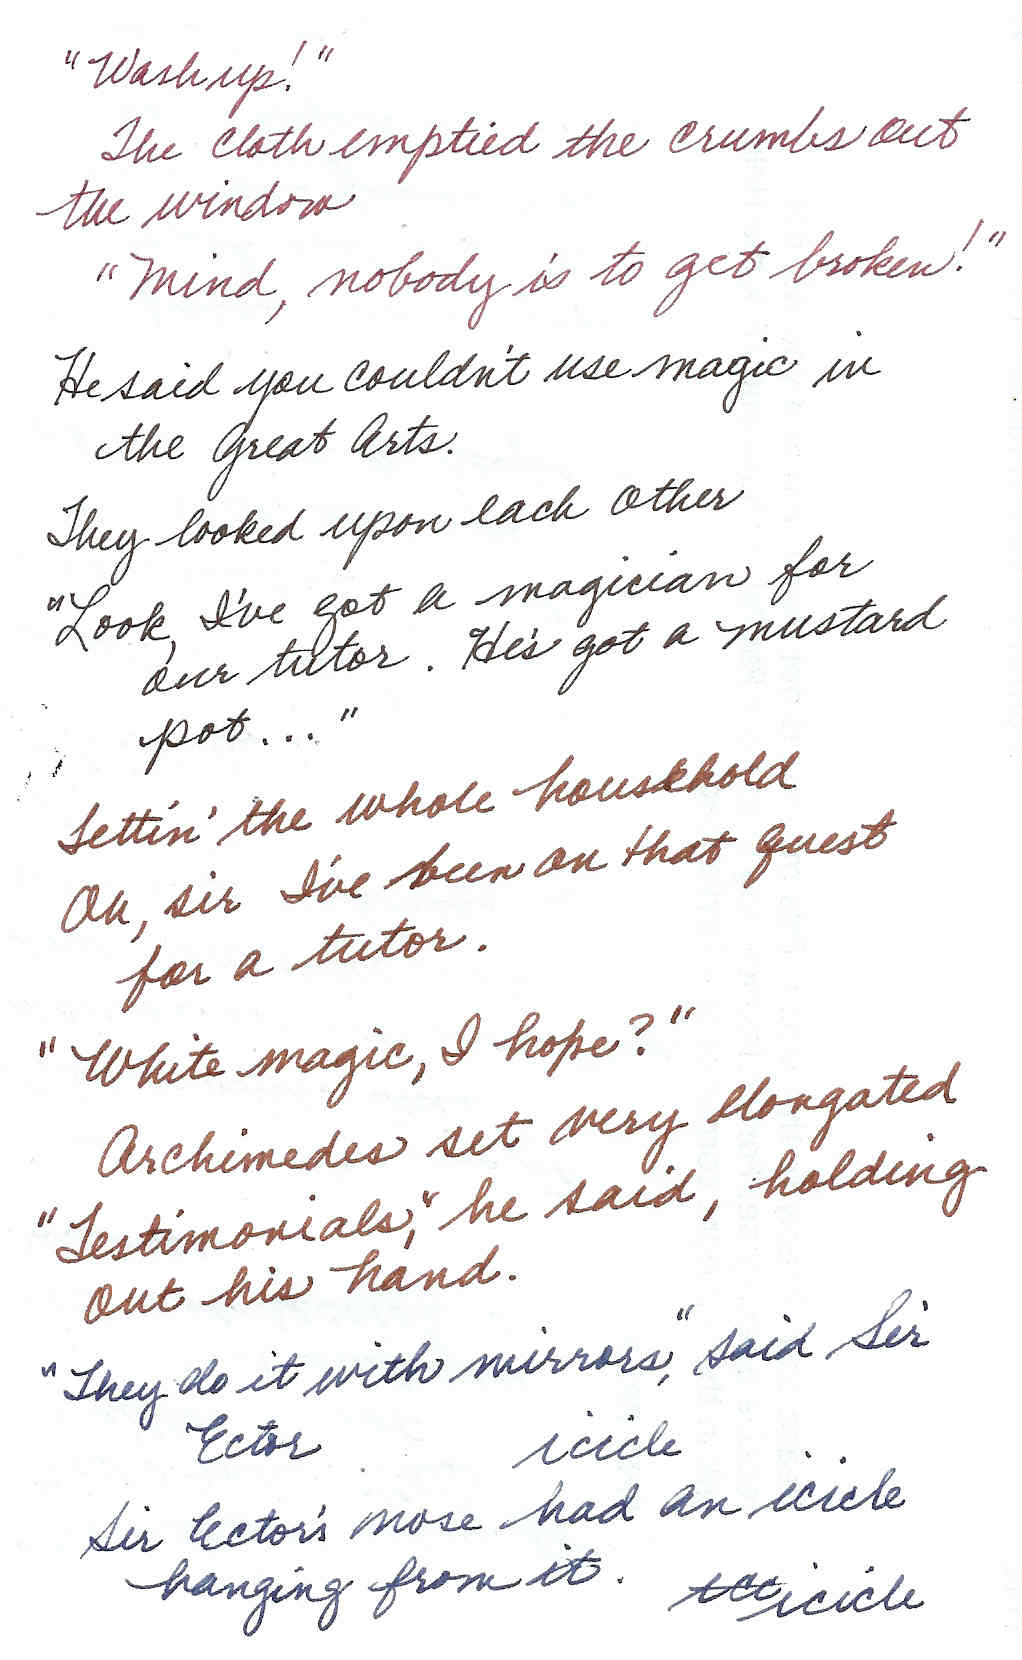 "Wash up!"
The cloth emptied the crumbs out
the window
"Mind, nobody is to get broken!"
He said you couldn't use magic in
the Great Arts.
They looked upon each other
"Look, I've got a magician for
our tutor. He's got a mustard
pot..."
Settin' the whole household
Oh, sir I've been on that quest
for a tutor.
"White magic, I hope?"
Archimedes set very elongated
"Testimonials," he said, holding
out his hand.
"They do it with mirrors," said Sir
Ector icicle
Sir Ector's nose had an icicle
hanging from it. icicle